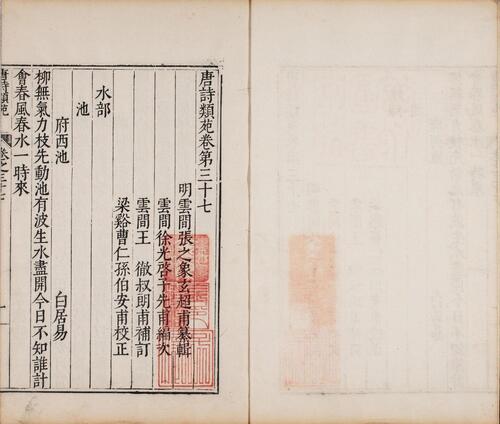 唐詩類苑卷第三十七
明雲間張之象玄超甫纂輯
雲間徐光啓子先甫編次
雲間王　徹叔朗甫補訂
梁谿曹仁孫伯安甫校正
水部
池
府西池　白居易
柳無氣力枝先動池有波生水盡開今日不知誰計
會春風春水一時來
唐詩類苑　卷之三十七　一